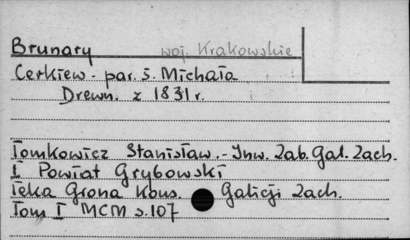 Brunary woj. Krakowskie
Cerkiew - par. ś. Michała
Drewn. z 1831 r.
Tomkowicz Stanisław. - Inw. Zab. Gal. Zach.
I. Powiat Grybowski
Teka Grona Kons. Galicji Zach.
Tom I MCM s. 107